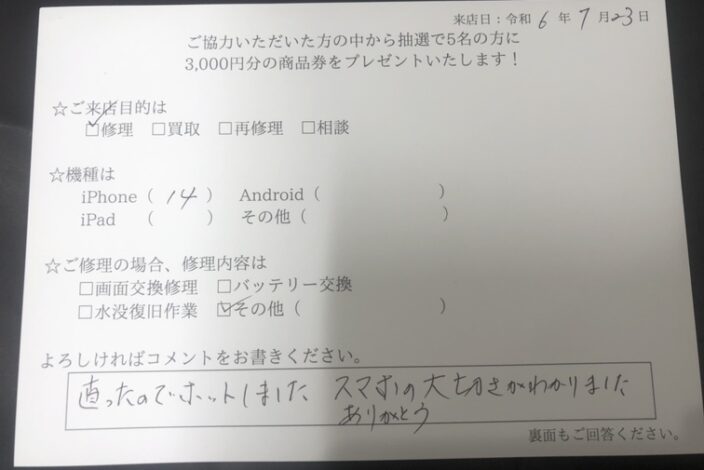 来店日：令和 6 年 7 月 23 日
ご協力いただいた方の中から抽選で5名の方に
3,000円分の商品券をプレゼントいたします！
☆ご来店目的は
☑修理 □買取 □再修理 □相談
☆機種は
iPhone（ 14 ） Android（ ）
iPad （ ） その他（ ）
☆ご修理の場合、修理内容は
□画面交換修理 □バッテリー交換
□水没復旧作業 ☑その他（ ）
よろしければコメントをお書きください。
直ったのでホットしました スマホの大切さがわかりました
ありがとう
裏面もご回答ください。